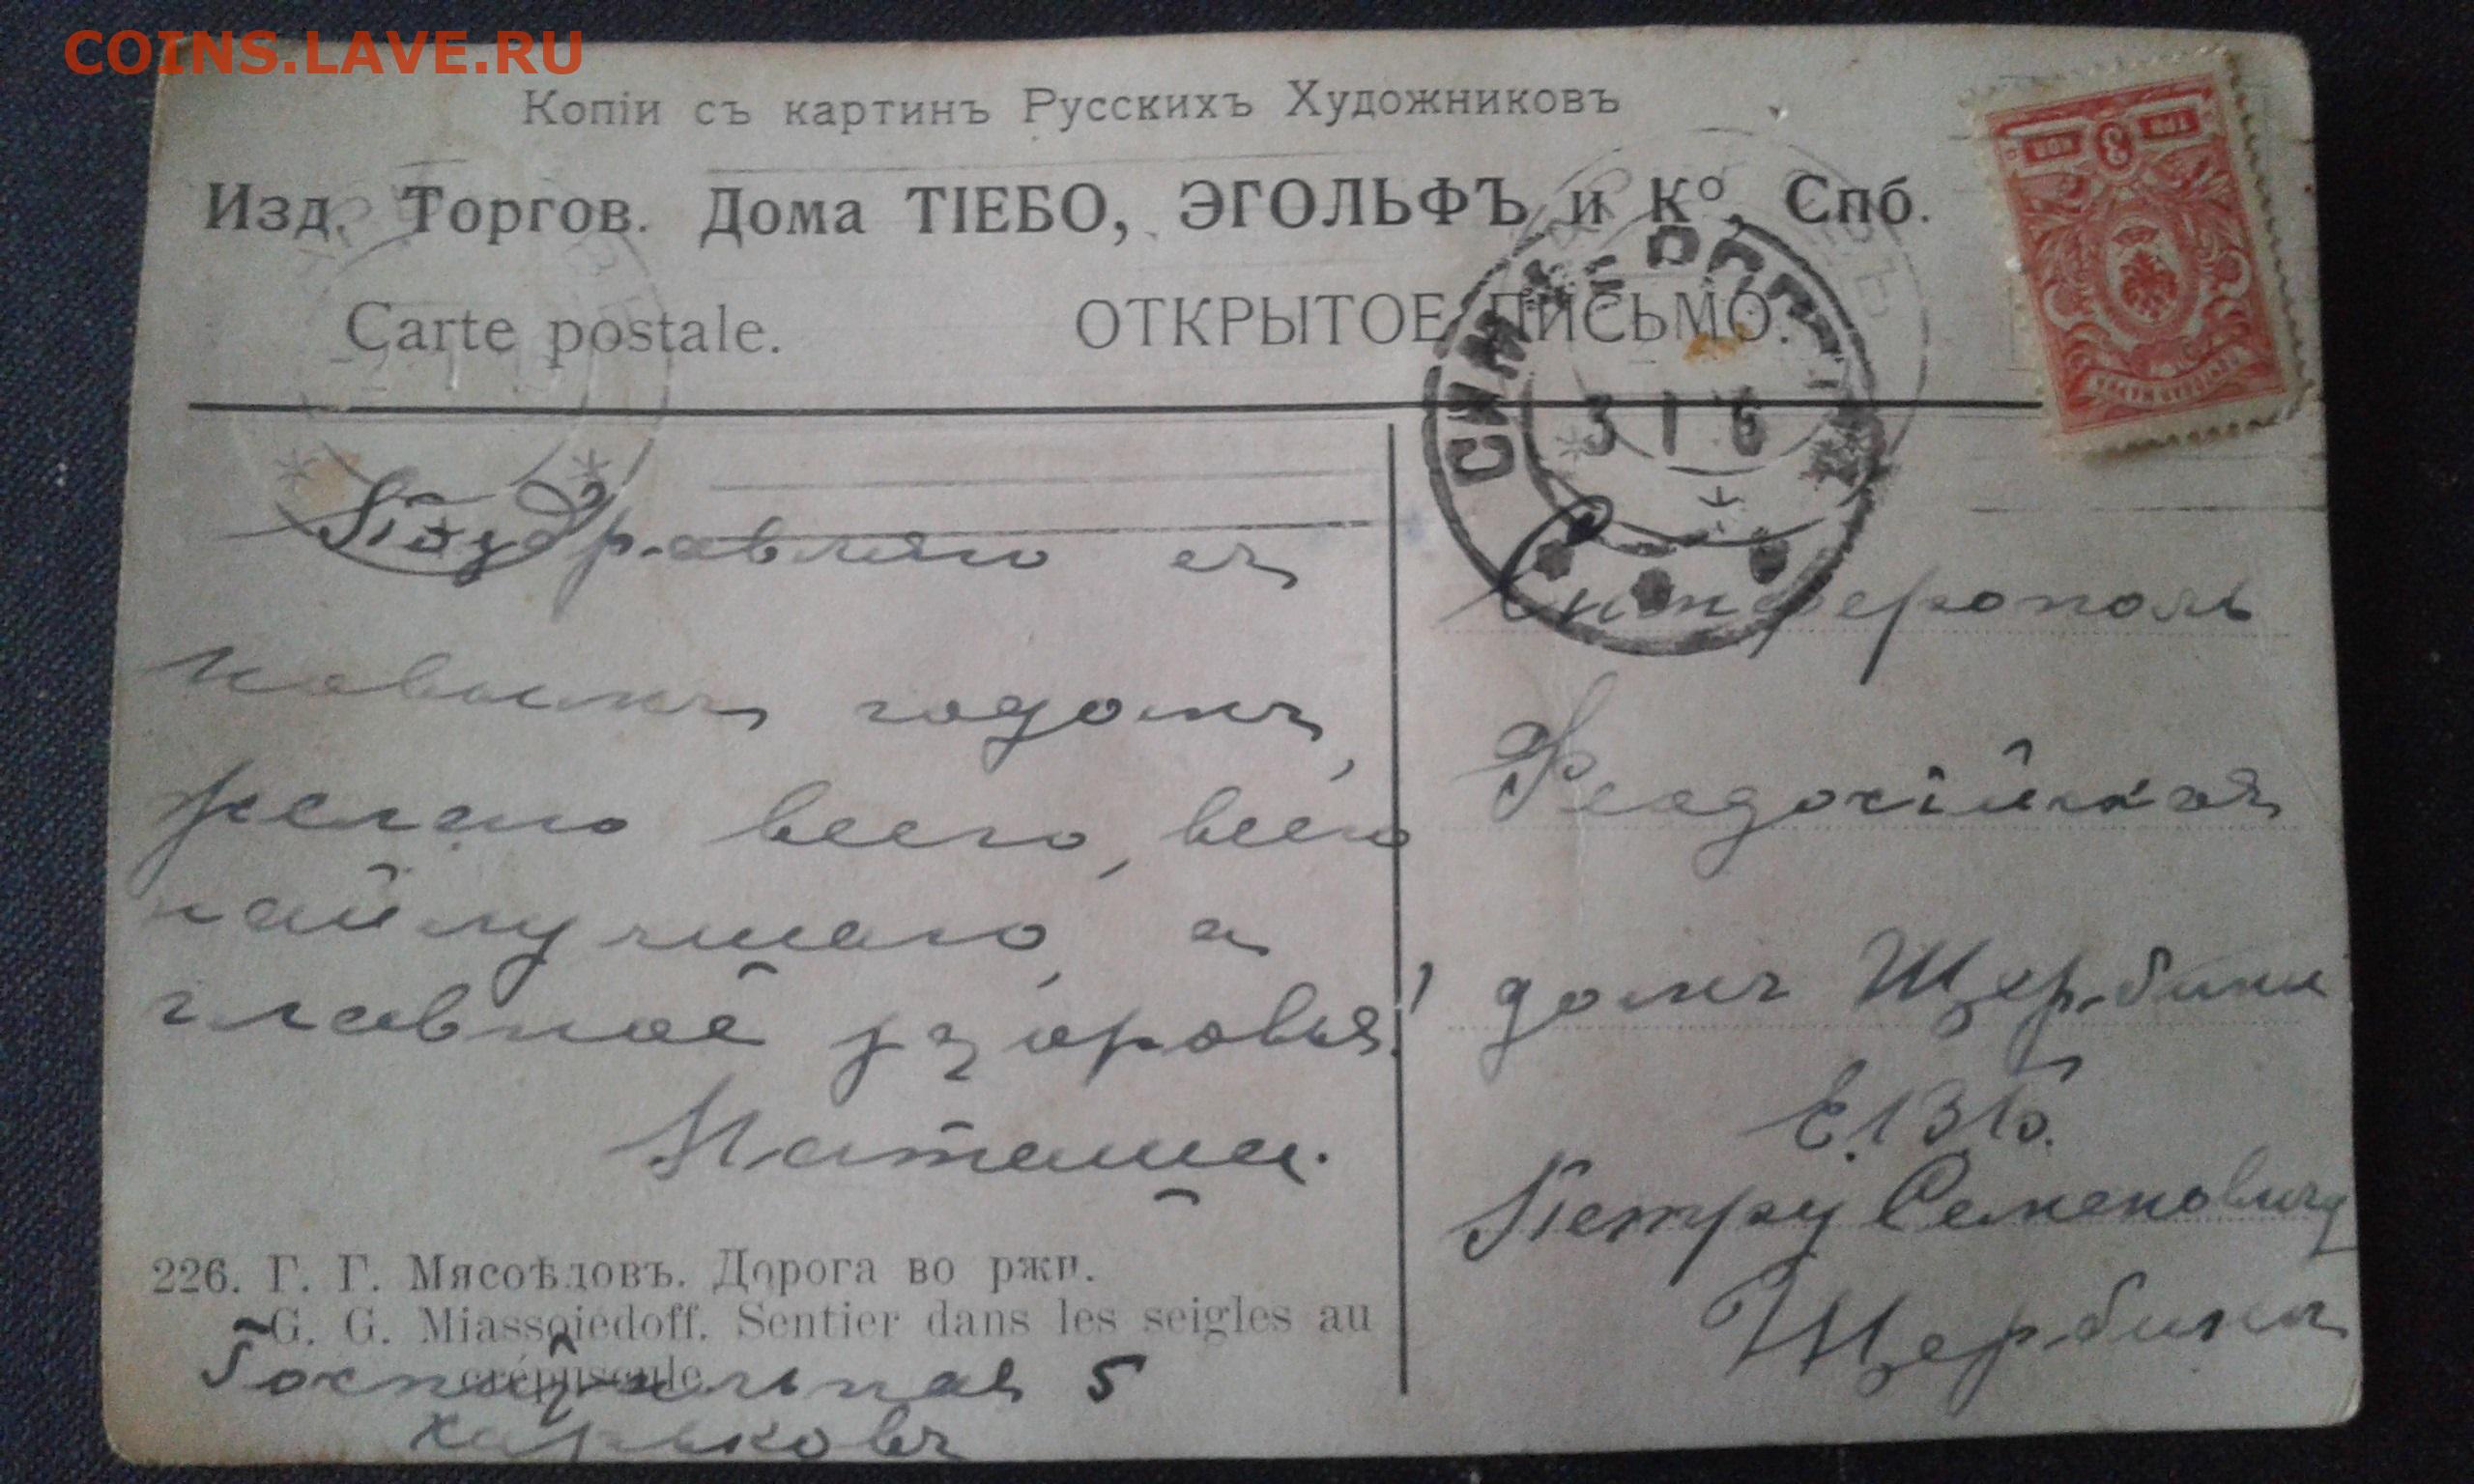 COINS.LAVE.RU
Копіи съ картинъ Русскихъ Художниковъ
Изд. Торгов. Дома ТІЕБО, ЭГОЛЬФЪ и К°, Спб.
Carte postale. ОТКРЫТОЕ ПИСЬМО.
СИМФЕРОПОЛЬ
3 1 6
Поздравляю съ
новымъ годомъ,
желаю всего, всего
найлучшаго, а
главное здоровья!
Наташа.
226. Г. Г. Мясоѣдовъ. Дорога во ржи.
G. G. Miassoiedoff. Sentier dans les seigles au
crépuscule
Госпитальная 5
Харьковъ
Симферополь
Феодосійская
домъ Щербины
Петру Семеновичу
Щербина